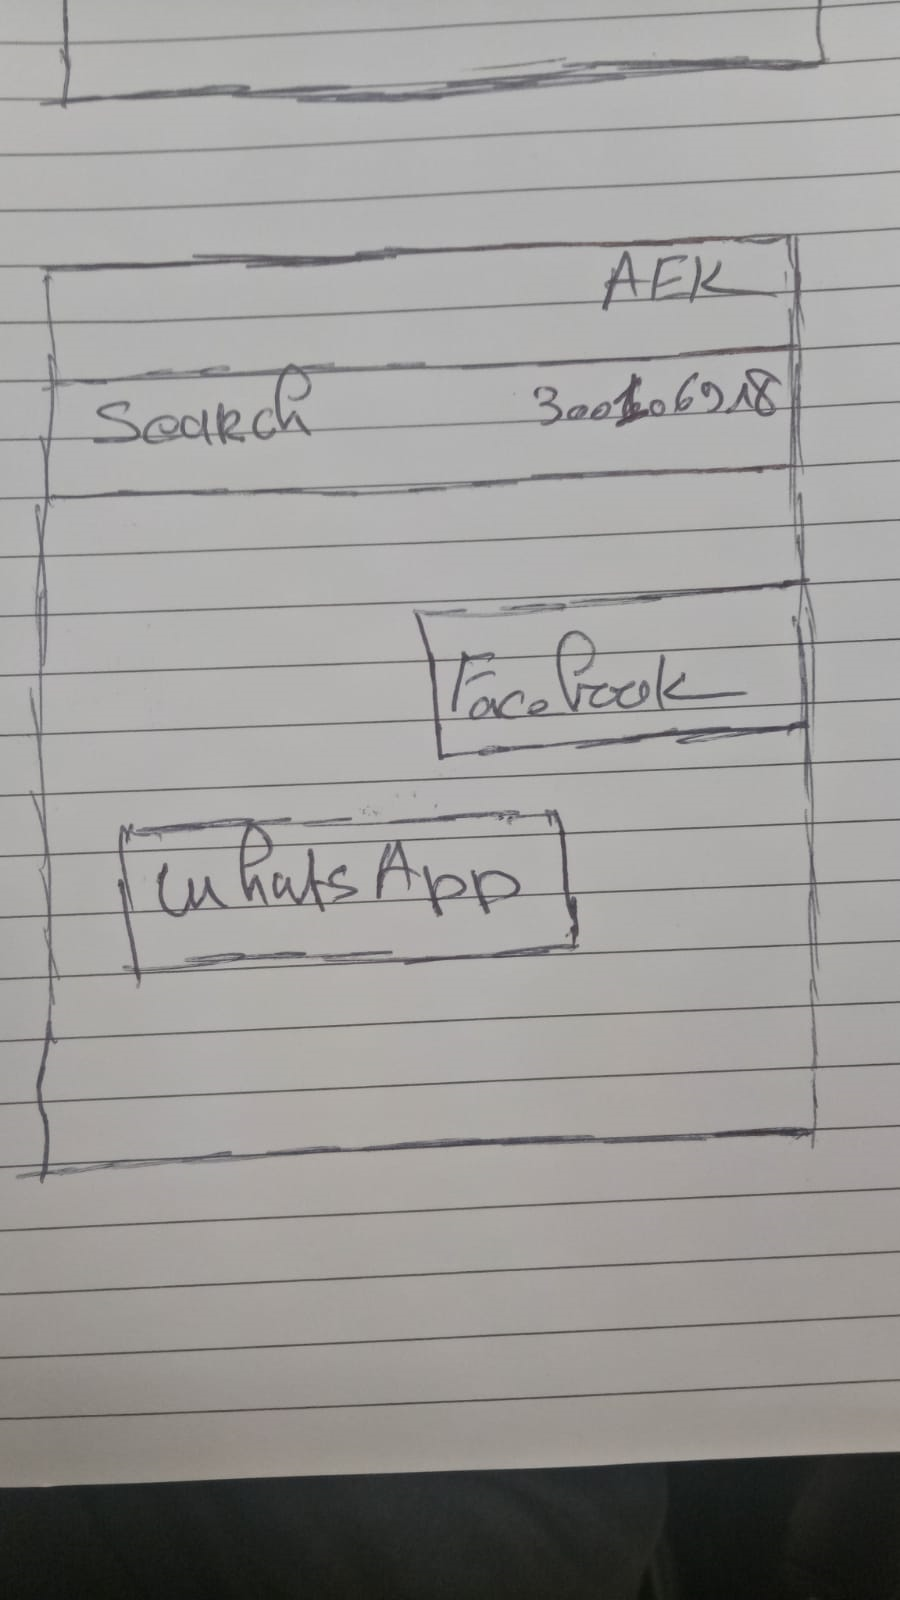 AEK
Search 300106918
Facebook
WhatsApp